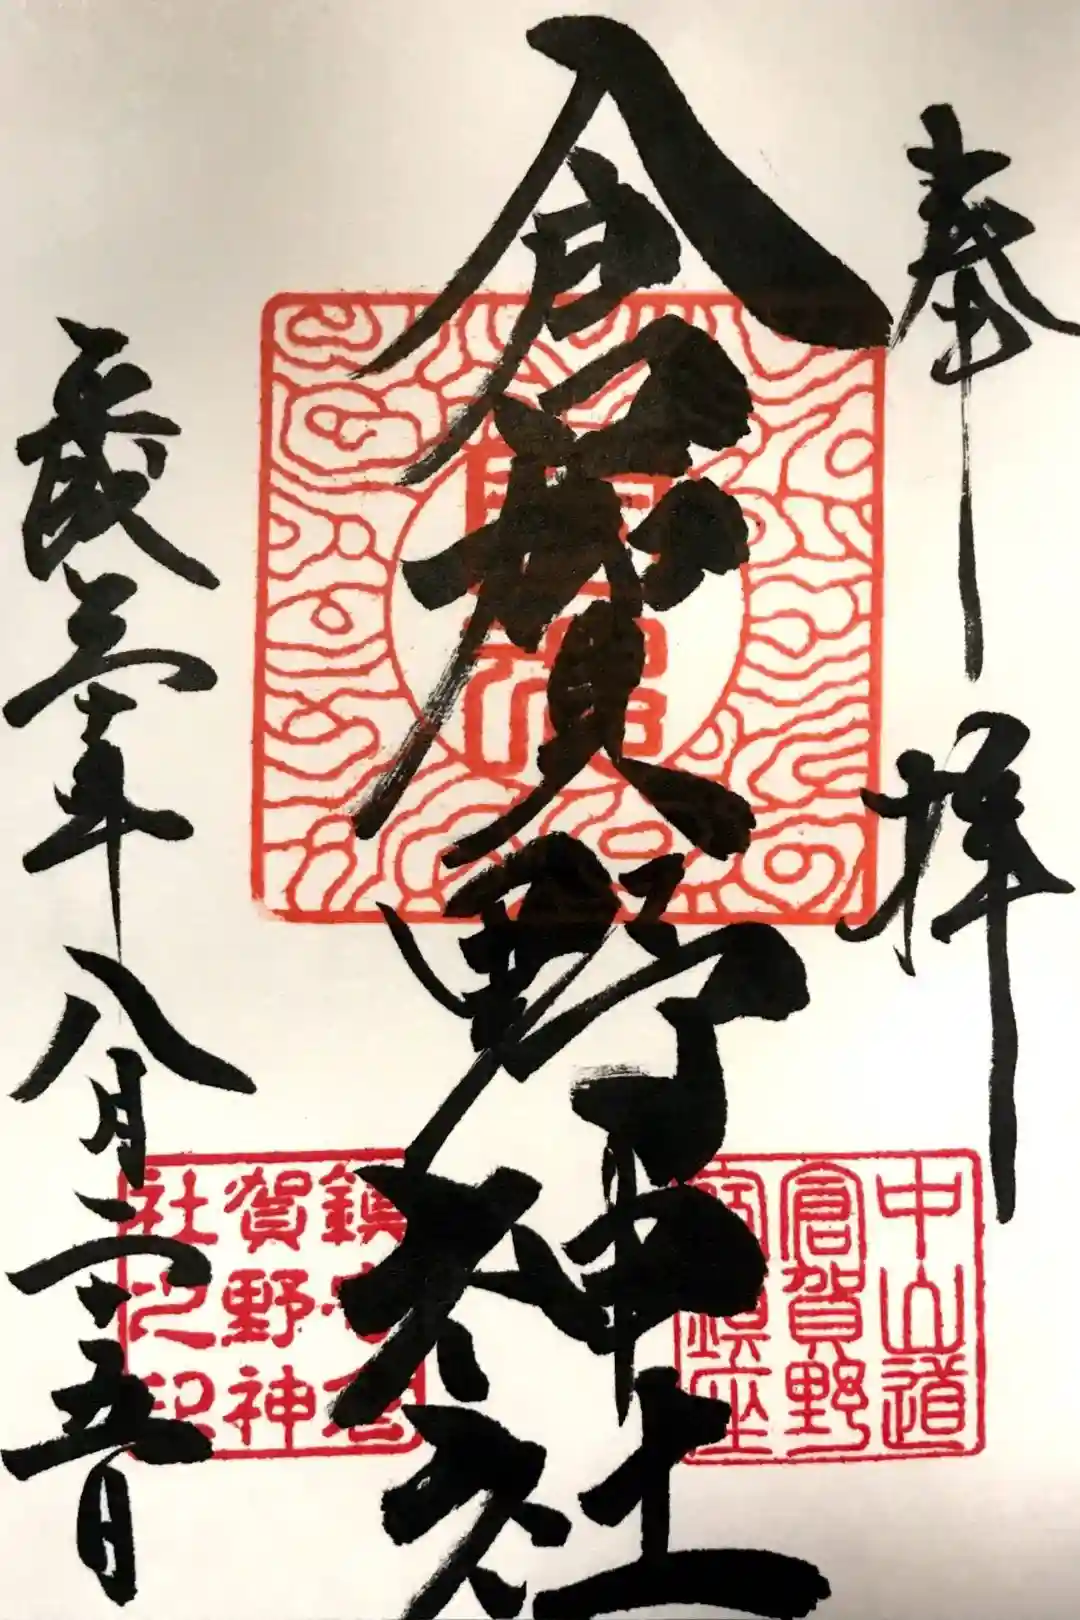 奉拝
倉賀野神社
平成三十年八月二十五日
中山道
倉賀野
宿鎮座
鎮守倉
賀野神
社之印